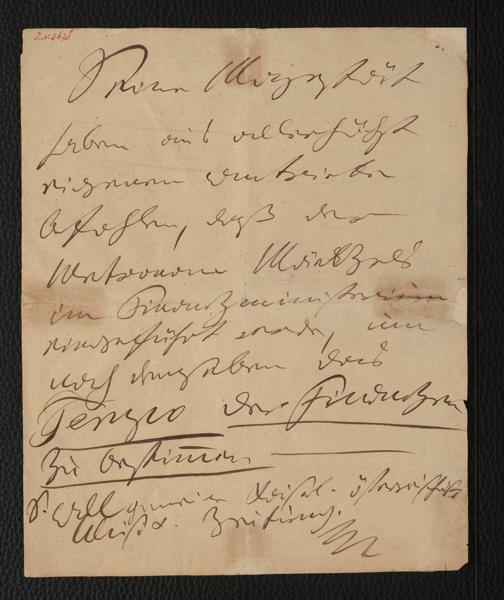 Seine Majestät
haben aus allerhöchst
eigenem antriebe
befohlen, daß der
Metronom Mälzels
im Finanzministerium
eingeführt werde, um
nach demselben das
Tempo der Finanzen
zu bestimmen —
S. allgemeine Kaisel. österreichische
Musik. Zeitung.